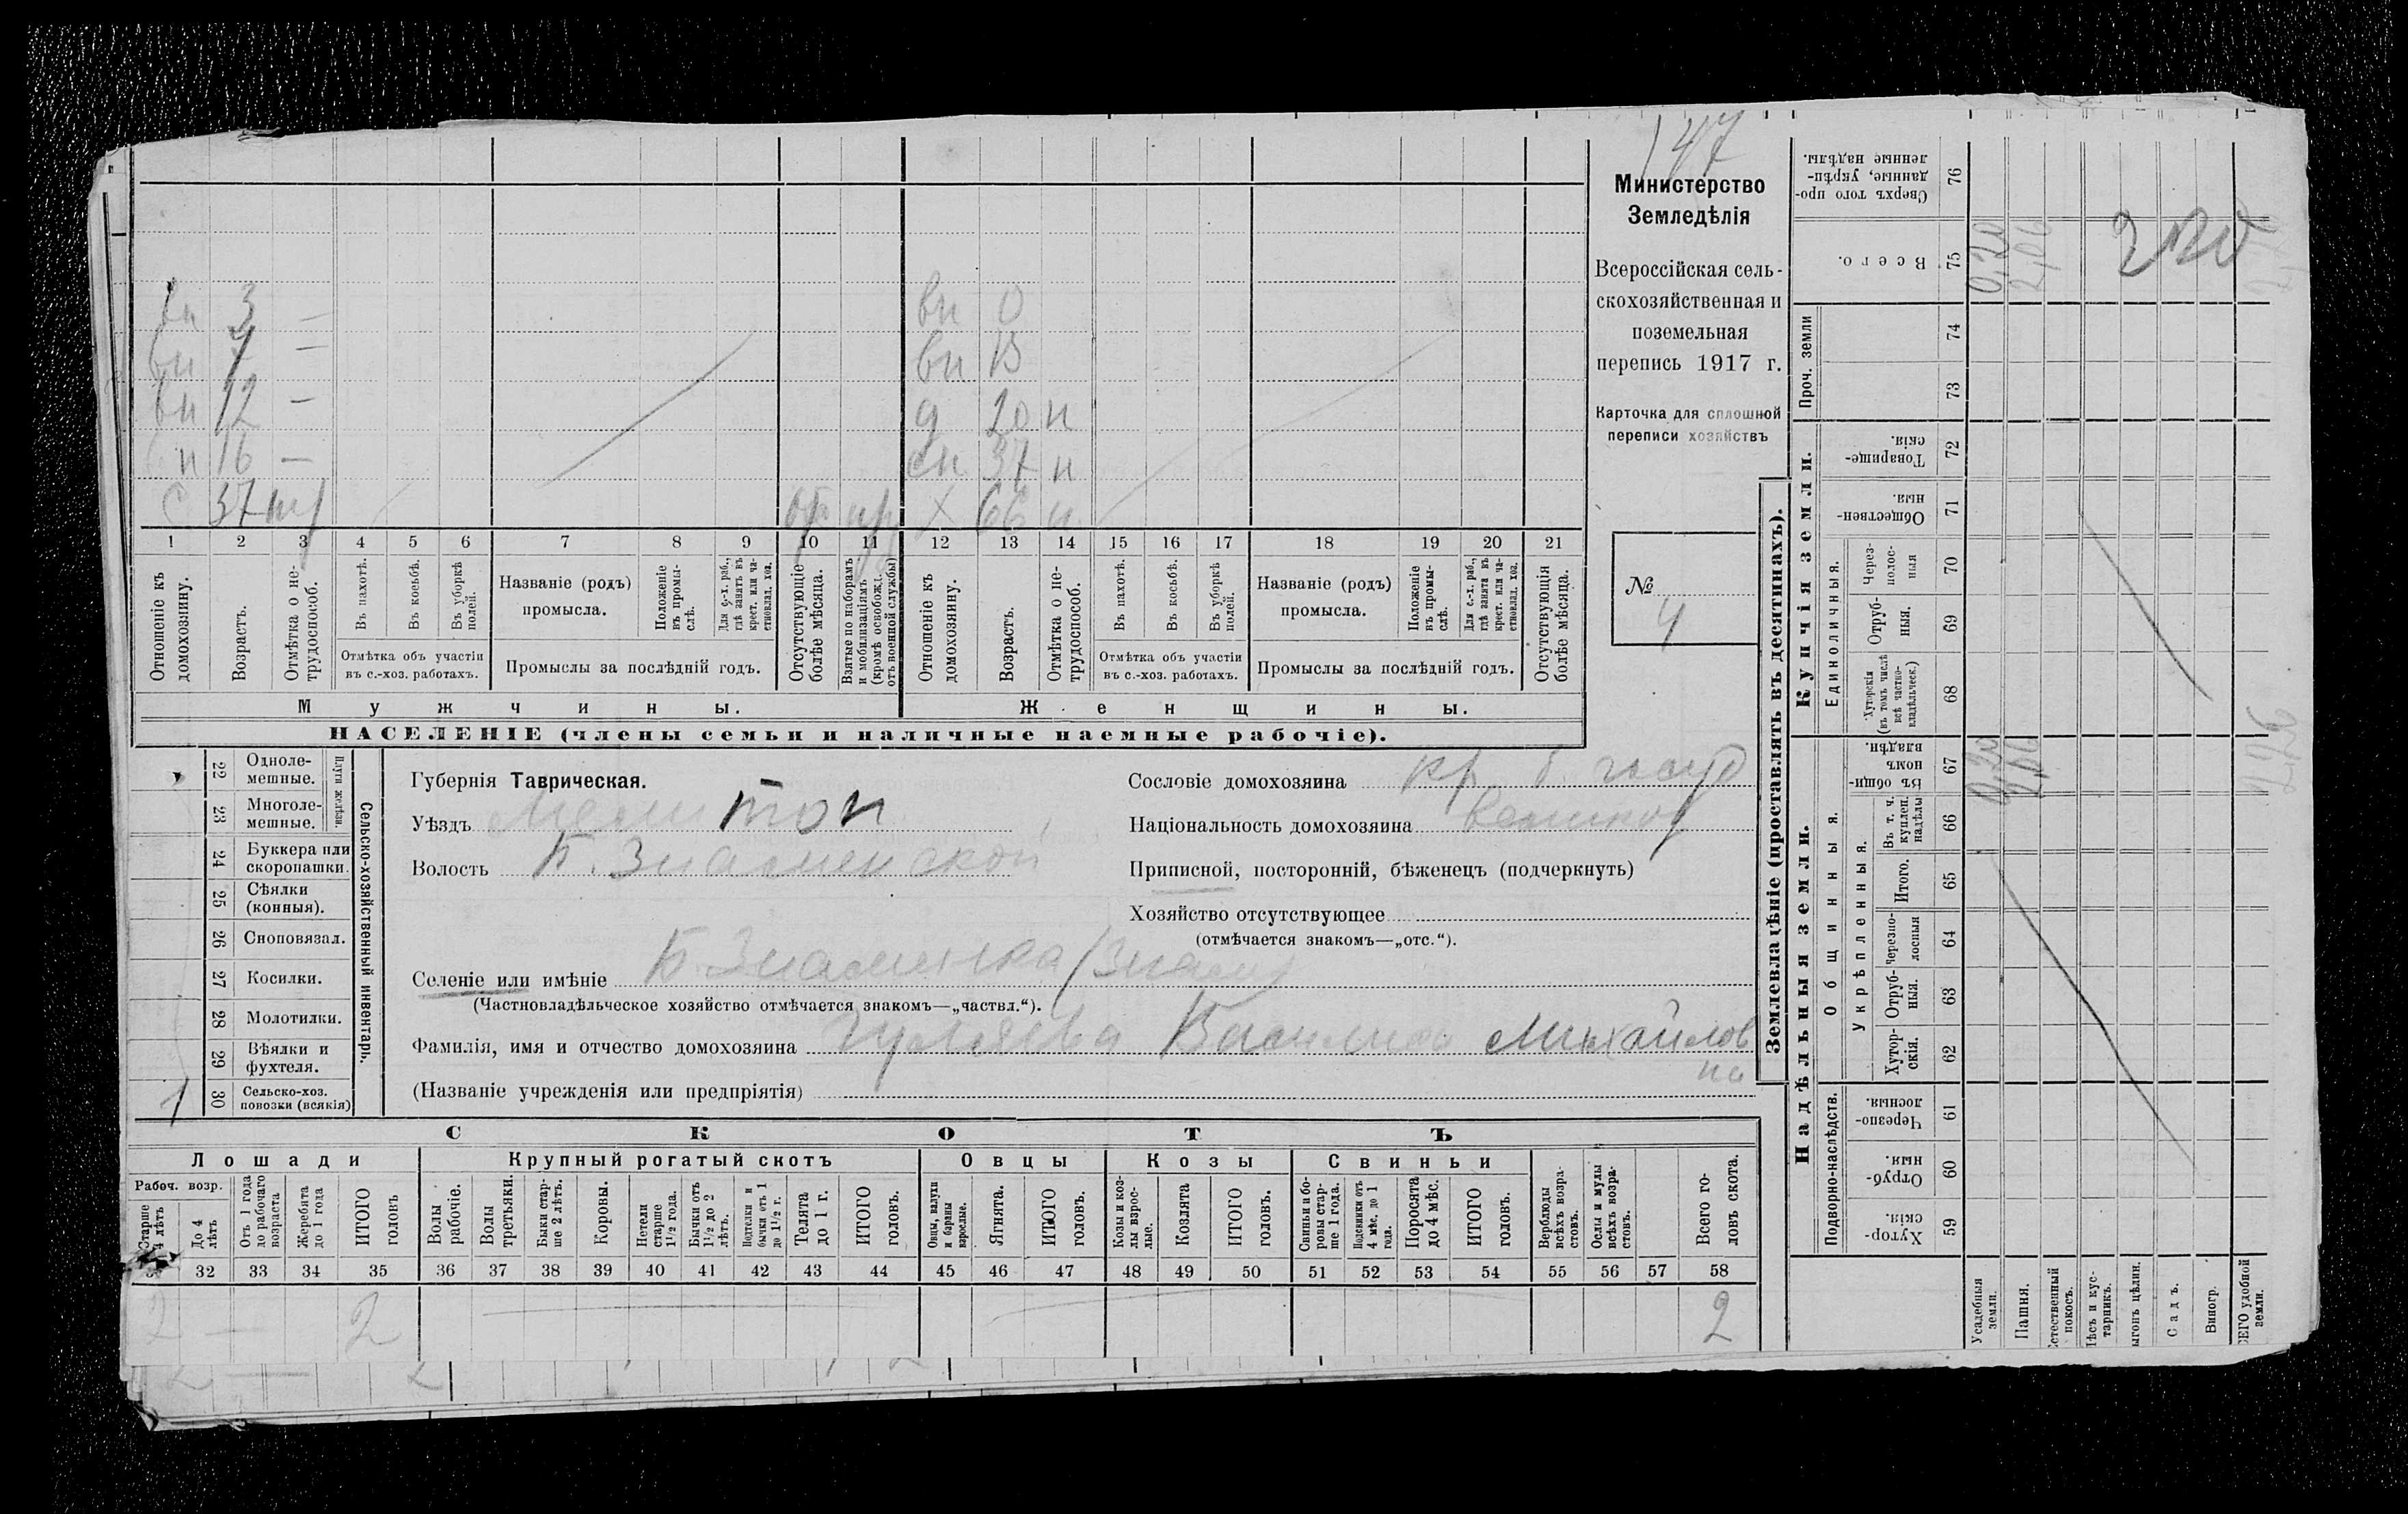 147
Министерство
Земледѣлія
Всероссійская сель-
скохозяйственная и
поземельная
перепись 1917 г.
Карточка для сплошной
переписи хозяйствъ
№
4
вп 3 — вп 0
вп 7 — вп 13
вп 12 — д 20 н
п 16 — сн 37 н
с 37 х 66 н
1 2 3 4 5 6 7 8 9 10 11 12 13 14 15 16 17 18 19 20 21
Отношеніе къ домохозяину.
Возрастъ.
Отмѣтка о не-трудоспособ.
Въ пахотѣ.
Въ косьбѣ.
Въ уборкѣ полей.
Отмѣтка объ участіи
въ с.-хоз. работахъ.
Названіе (родъ)
промысла.
Положеніе въ промы-слѣ.
Для с.-х. раб., гдѣ занятъ въ крест. или ча-стновлад. хоз.
Промыслы за послѣдній годъ.
Отсутствующіе болѣе мѣсяца.
Взятые по наборамъ и мобилизаціямъ (кромѣ освобожд. отъ военной службы)
Отношеніе къ домохозяину.
Возрастъ.
Отмѣтка о не-трудоспособ.
Въ пахотѣ.
Въ косьбѣ.
Въ уборкѣ полей.
Отмѣтка объ участіи
въ с.-хоз. работахъ.
Названіе (родъ)
промысла.
Положеніе въ промы-слѣ.
Для с.-х. раб., гдѣ занята въ крест. или ча-стновлад. хоз.
Промыслы за послѣдній годъ.
Отсутствующія болѣе мѣсяца.
Мужчины. Женщины.
НАСЕЛЕНІЕ (члены семьи и наличные наемные рабочіе).
Сельско-хозяйственный инвентарь.
Плуги желѣзн.
22 Одноле-мешные.
23 Многоле-мешные.
24 Буккера или скоропашки.
25 Сѣялки (конныя).
26 Сноповязал.
27 Косилки.
28 Молотилки.
29 Вѣялки и фухтеля.
1 30 Сельско-хоз. повозки (всякія)
Губернія Таврическая.
Уѣздъ Мелитоп
Волость Б. Знаменской
Селеніе или имѣніе Б Знаменка (Знам)
(Частновладѣльческое хозяйство отмѣчается знакомъ—„частвл.“).
Фамилія, имя и отчество домохозяина Гуляева Василиса Михайлов
на
(Названіе учрежденія или предпріятія)
Сословіе домохозяина кр. б. госуд
Національность домохозяина великор
Приписной, посторонній, бѣженецъ (подчеркнуть)
Хозяйство отсутствующее
(отмѣчается знакомъ—„отс.“).
СКОТЪ
Лошади Крупный рогатый скотъ Овцы Козы Свиньи
Рабоч. возр.
Старше 4 лѣтъ
До 4 лѣтъ
Отъ 1 года до рабочаго возраста
Жеребята до 1 года
ИТОГО головъ
Волы рабочіе.
Волы третьяки.
Быки стар-ше 2 лѣтъ.
Коровы.
Нетели старше 1½ года.
Бычки отъ 1½ до 2 лѣтъ.
Подтелки и бычки отъ 1 до 1½ г.
Телята до 1 г.
ИТОГО головъ.
Овцы, валухи и бараны взрослые.
Ягнята.
ИТОГО головъ.
Козы и коз-лы взрос-лые.
Козлята
ИТОГО головъ.
Свиньи и бо-ровы стар-ше 1 года.
Подсвинки отъ 4 мѣс. до 1 года.
Поросята до 4 мѣс.
ИТОГО головъ.
Верблюды всѣхъ возра-стовъ.
Ослы и мулы всѣхъ возра-стовъ.
Всего го-ловъ скота.
32 33 34 35 36 37 38 39 40 41 42 43 44 45 46 47 48 49 50 51 52 53 54 55 56 57 58
2 — 2 2
Землевладѣніе (проставлять въ десятинахъ).
Надѣльныя земли.
Купчія земли.
Проч. земли
Подворно-наслѣдств.
Общинныя.
Укрѣпленныя.
Единоличныя.
Сверхъ того про-данные, укрѣп-ленные надѣлы. 76
Всего. 75
74
73
Товарище-скія. 72
Обществен-ныя. 71
Через-полос-ныя 70
Отруб-ныя. 69
Хуторскія (въ томъ числѣ всѣ частно-владѣльческ.) 68
Въ общин-номъ владѣн. 67
Въ т. ч. куплен. надѣлы 66
Итого. 65
Черезпо-лосныя 64
Отруб-ныя. 63
Хутор-скія. 62
Черезпо-лосныя. 61
Отруб-ныя. 60
Хутор-скія. 59
Усадебныя земли.
Пашня.
Естественный покосъ.
Лѣсъ и кус-тарникъ.
Выгонъ цѣлин.
Садъ.
Виногр.
ВСЕГО удобной земли.
0,20
2,06
0,20
2,06
2,26